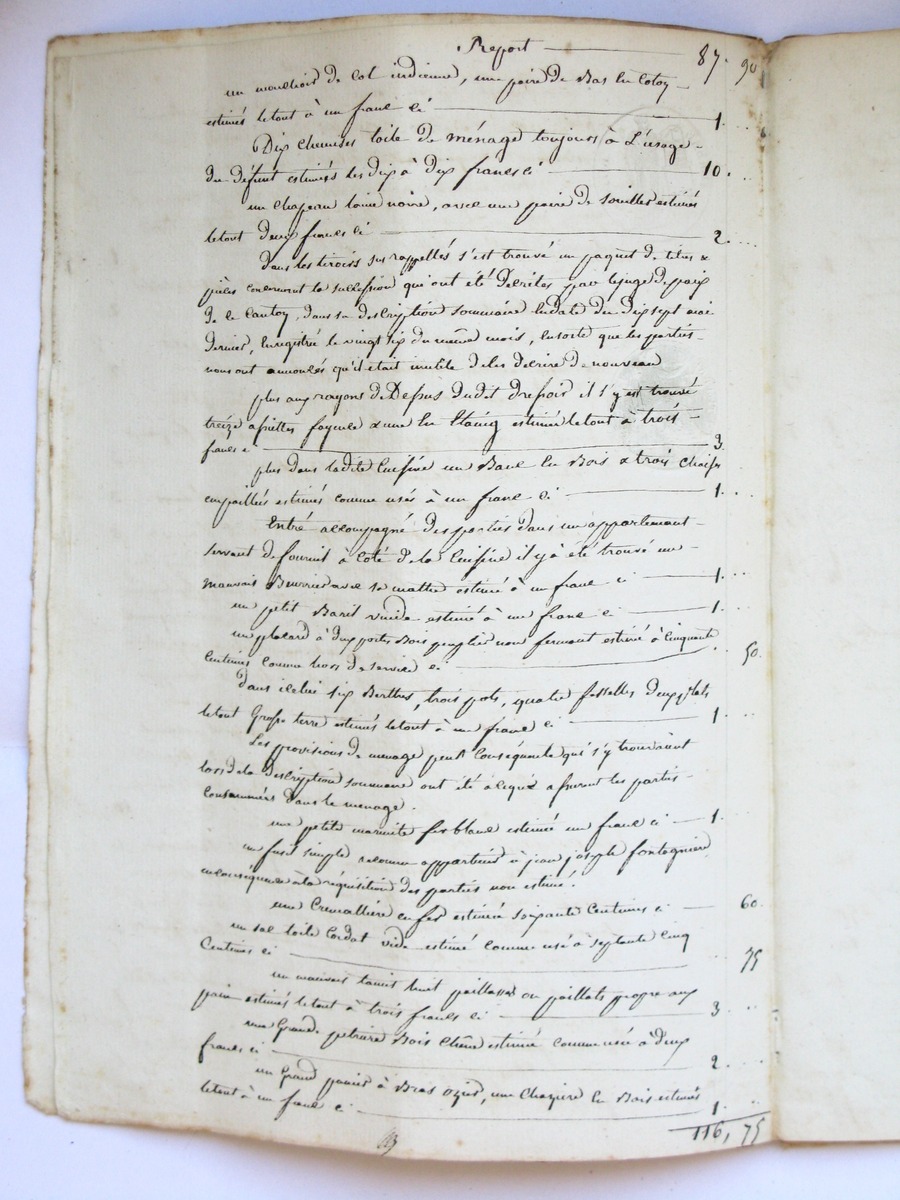 Report — 87. 90
un mouchoir de col indienne, une paire de Bas en Coton
estimés letout à un franc ci — 1. ..
Dix chemises toile de ménage toujours à L'usage
du défunt estimées les dix à dix francs ci — 10. ..
un chapeau laine noire, avec une paire de souilles estimés
letout deux francs ci — 2. ..
dans les tiroirs sus rappellés s'est trouvé un paquet de titres &
pièces concernant la succession qui ont été Décrites par le juge de paix
de ce canton, dans sa description sommaire en date du dix sept mai
dernier, enregistré le vingt six du même mois, en sorte que les parties
nous ont annoncés qu'il était inutile de les décrire de nouveau
plus aux rayons de Dessus dudit dressoir il s'y est trouvé
treize assiettes fayence & une en Etaing estimées letout à trois
francs ci — 3.
plus dans ladite Cuisine un Banc en Bois & trois chaises
empaillées estimés comme usés à un franc ci — 1. ..
Entré accompagné des parties dans un appartement
servant de fournil à Coté de la Cuisine il y a été trouvé un
mauvais Burrier avec sa mattre estimé à un franc ci — 1. ..
un petit Baril vuide estimé à un franc ci — 1. ..
un placard à deux portes Bois peuplier non fermant estimé à cinquante
Centimes comme hors de service ci — . 50.
Dans icelui six Berthes, trois pots, quatre fesselles deux plats
letout Grosse terre estimés letout à un franc ci — 1. ..
Les provisions de menage peut Conséquente qui s'y trouvaient
lors de la Description sommaire ont été à ce qu'assurent les parties
Consommées dans le menage.
une petite marmite fer blanc estimée un franc ci — 1. ..
un fusil simple reconnu appartenir à jean joseph fontagnier
en conséquence à la réquisition des parties non estimé.
une Cremallière en fer estimée soixante Centimes ci — 60.
un sac toile Cordat vide estimé comme usé à septante cinq
Centimes ci — .. 75
un mauvais tamis huit paillasses ou paillats propre aux
pain estimés letout à trois francs ci — 3. ..
une Grande petriere Bois chêne estimée comme usée à deux
francs ci — 2. ..
un Grand panier à Bras ozier, une en Bois estimés
letout à un franc ci — 1. ..
116, 75